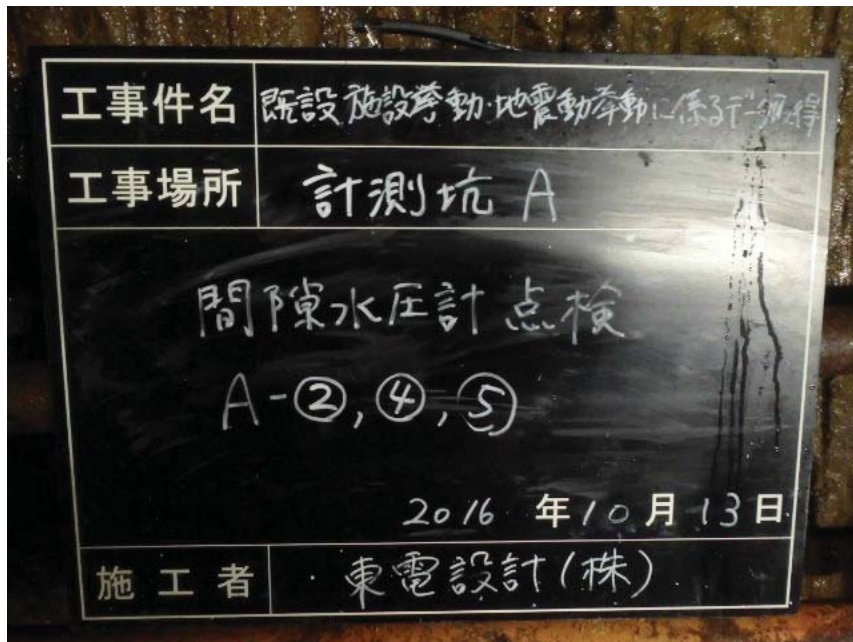 工事件名 既設施設挙動・地震動挙動に係るデータ取得
工事場所 計測坑 A
間隙水圧計点検
A-②,④,⑤
2016 年10月13日
施工者 東電設計(株)